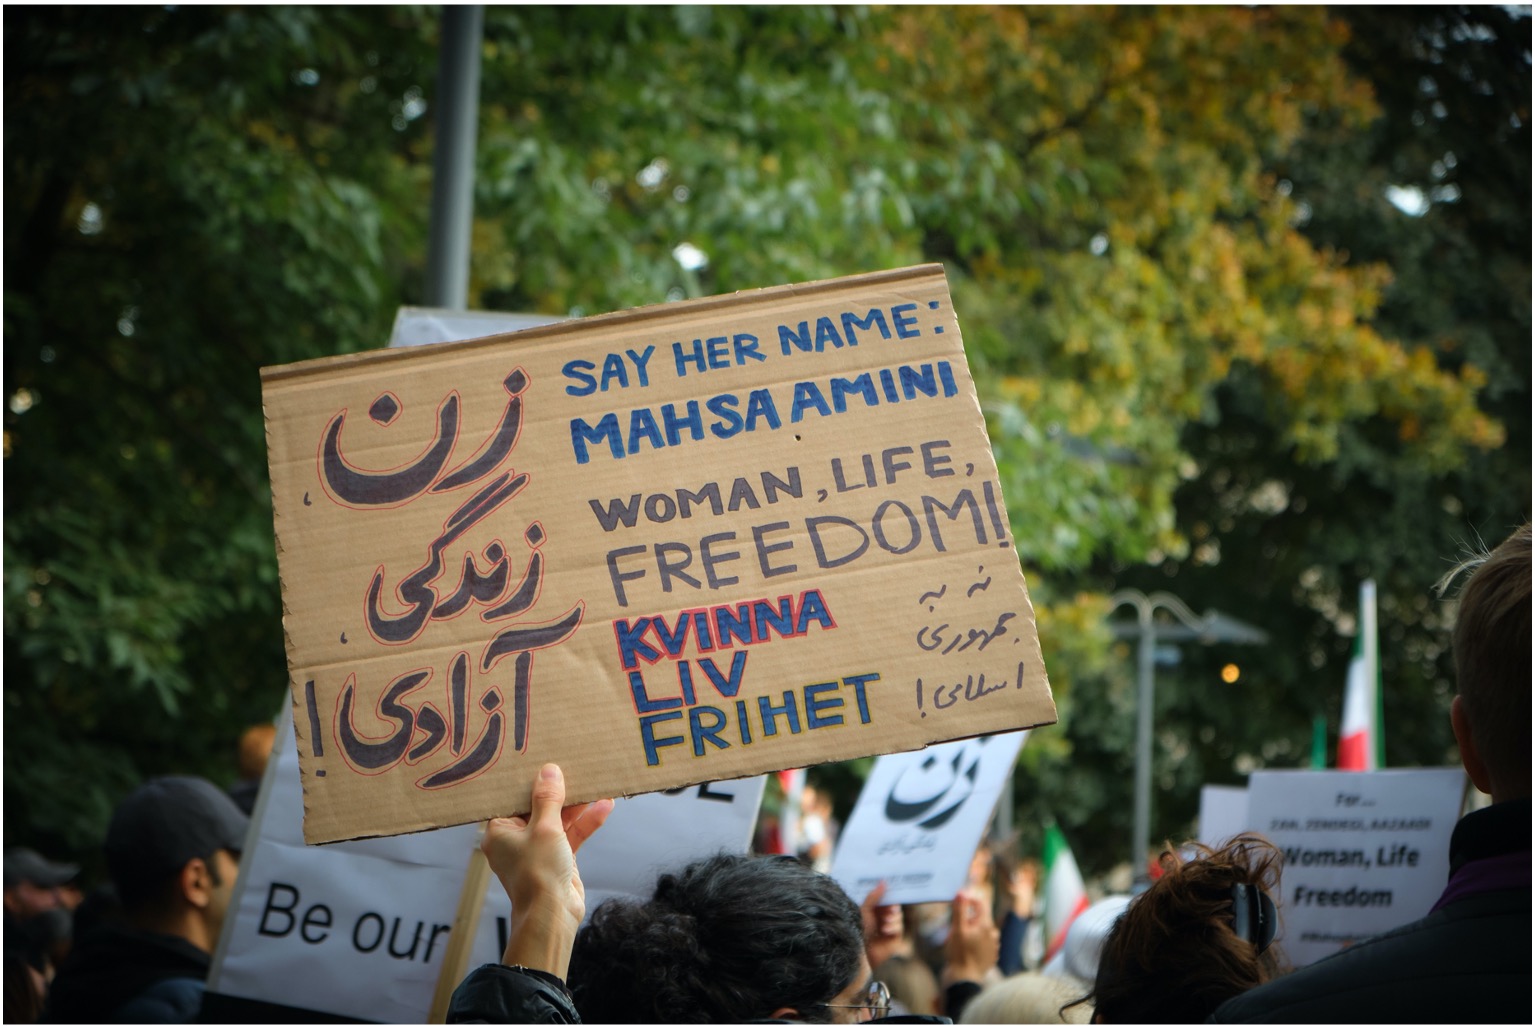 زن،
زندگی،
آزادی!
SAY HER NAME:
MAHSA AMINI
WOMAN, LIFE,
FREEDOM!
KVINNA
LIV
FRIHET
نه به
جمهوری
اسلامی!
Be our
زن
زندگی آزادی
For...
ZAN, ZENDEGI, AAZAADI
Woman, Life
Freedom